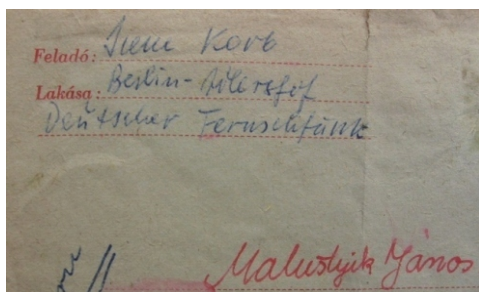 Feladó: Irene Korb
Lakása: Berlin-Adlershof
Deutscher Fernsehfunk
Malustyik János